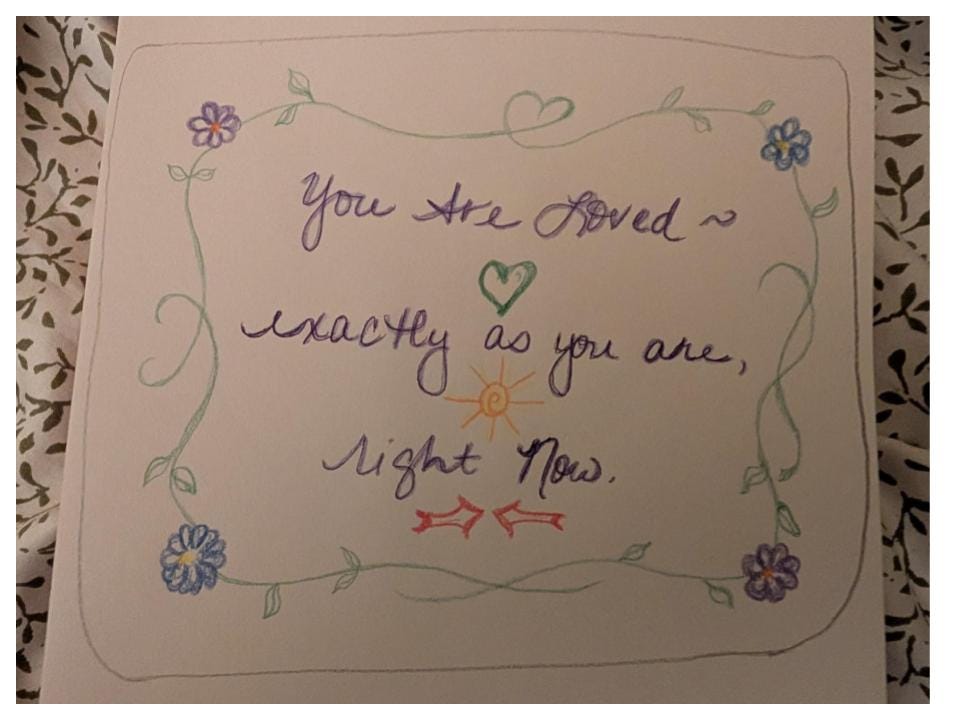 You Are Loved ~
exactly as you are,
right Now.